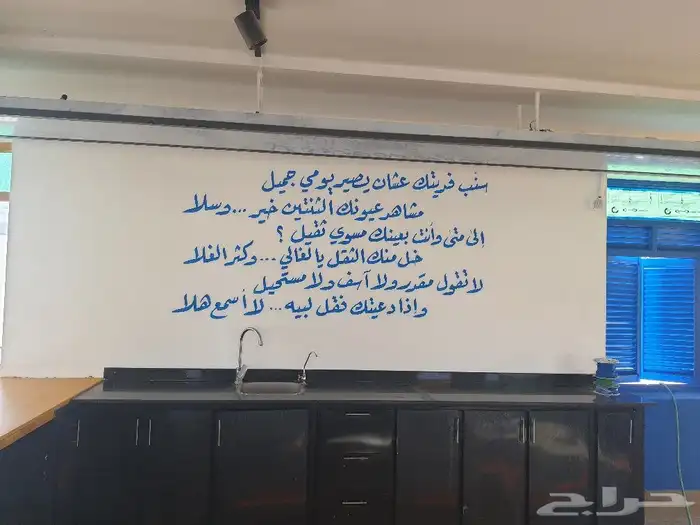 سنّب فديتك عشان يصير يومي جميل
مشاهد عيونك الثنتين خير ... وسلا
إلى متى وأنت بعينك مسوي ثقيل ؟
خل منك الثقل يالغالي ... وكثر الغلا
لا تقول مقدر ولا آسف ولا مستحيل
وإذا دعيتك فقل لبيه ... لا أسمع هلا
حراج